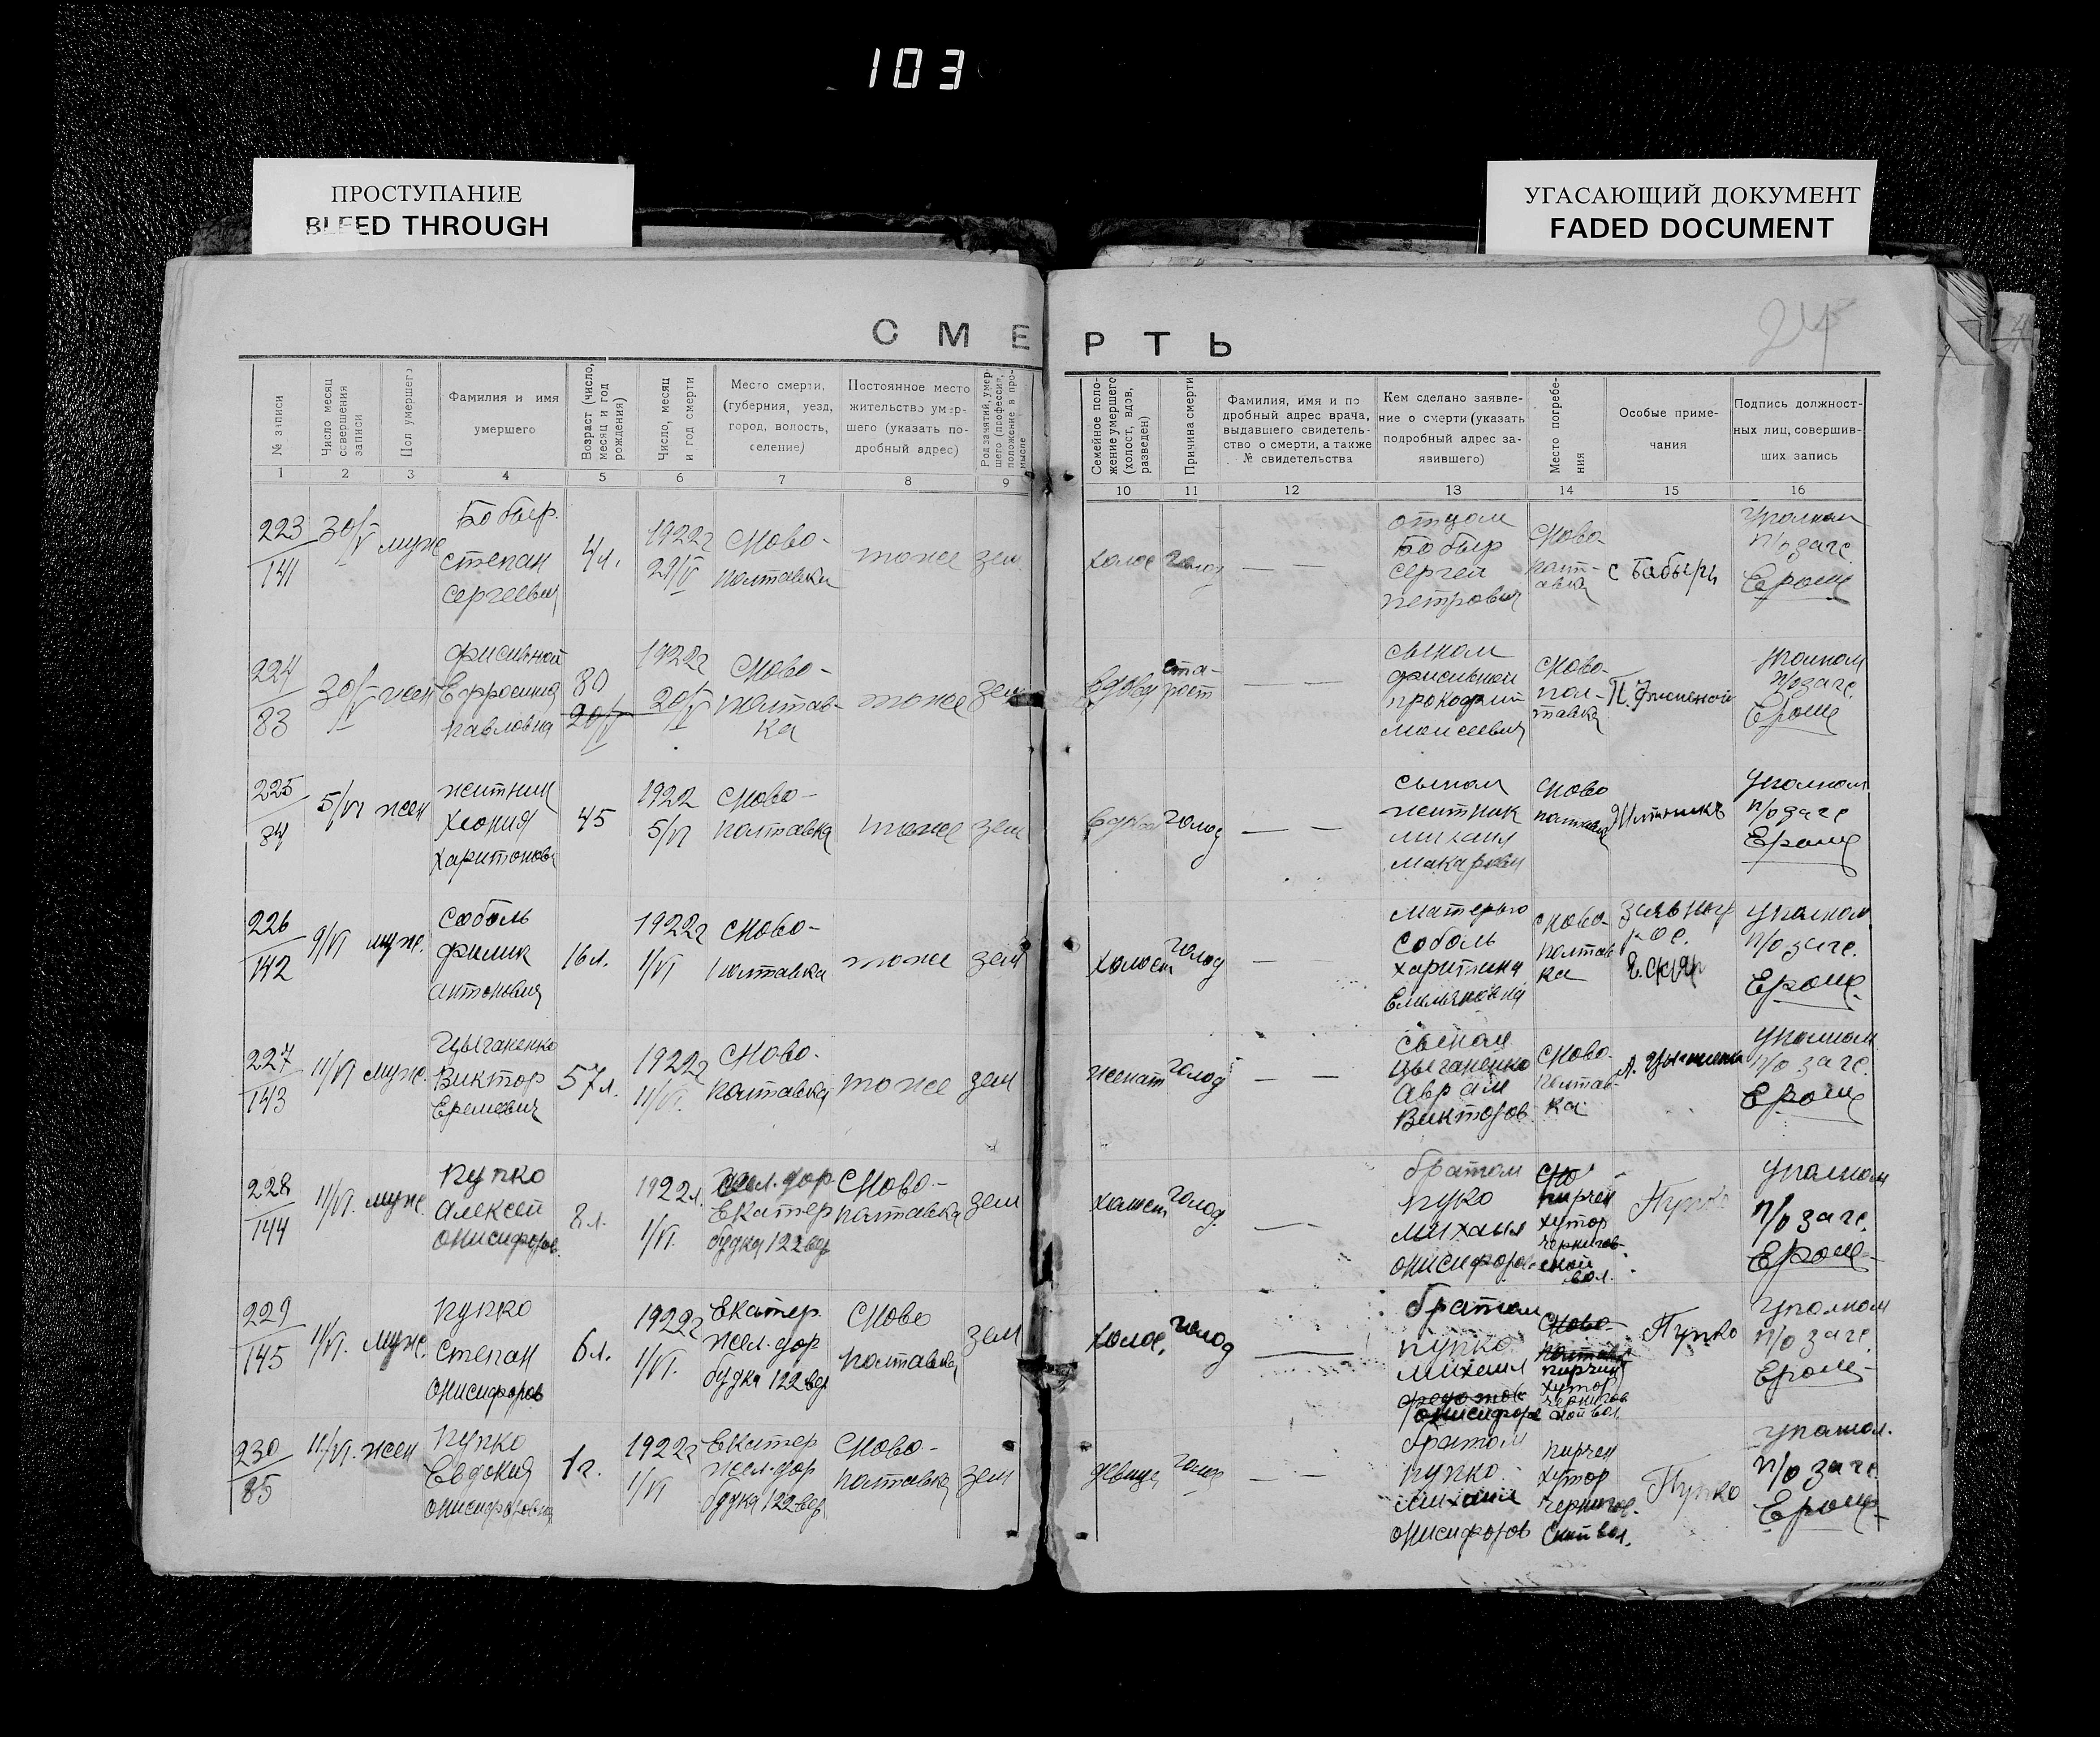 103
ПРОСТУПАНИЕ
BLEED THROUGH
УГАСАЮЩИЙ ДОКУМЕНТ
FADED DOCUMENT
24
СМЕРТЬ
№ записи
Число месяц совершения записи
Пол умершего
Фамилия и имя умершего
Возраст (число, месяц и год рождения)
Число, месяц и год смерти
Место смерти, (губерния, уезд, город, волость, селение)
Постоянное место жительство умершего (указать подробный адрес)
Род занятий, умершего (профессия, положение в промысле
Семейное положение умершего (холост, вдов, разведен)
Причина смерти
Фамилия, имя и подробный адрес врача, выдавшего свидетельство о смерти, а также № свидетельства
Кем сделано заявление о смерти (указать подробный адрес заявившего)
Место погребения
Особые примечания
Подпись должностных лиц, совершивших запись
1 2 3 4 5 6 7 8 9 10 11 12 13 14 15 16
223
141
30/V
муж
Бобыр
Степан
Сергеевич
4 л.
1922 г
29/V
Ново-
полтавка
тоже
зем
холос
голод
— —
отцом
Бобыр
Сергей
Петрович
Ново
полт-
авка
Уполном
п/о загс
224
83
30/V
жен
Ефросиния
Павловна
80
20/V
1922 г
20/V
Ново-
полтав-
ка
тоже
зем
вдова
ста-
рост
— —
сыном
Прокофий
Моисеевич
Ново-
пол-
тавка
Уполном
п/о загс.
225
84
5/VI
жен
Житник
Хиония
Харитонова
45
1922
5/VI
Ново-
полтавка
тоже
зем
вдова
голод
— —
сыном
Житник
Михаил
Макарович
Ново
полтавка
Житникъ
Уполном
п/о загс
226
142
9/VI
муж.
Соболь
Филик
Антонович
16 л.
1922 г
1/VI
Ново-
полтавка
тоже
зем
холост
голод
— —
Матерью
Соболь
Харитина
Емельяновна
Ново-
полтав
ка
Уполном
п/о загс.
227
143
11/VI
муж.
Цыганенко
Виктор
Еремевич
57 л.
1922 г
11/VI.
Ново-
полтавка
тоже
зем
женат
голод
— —
сыном
Цыганенко
Аврам
Викторов.
Ново-
полтав-
ка
Уполном
п/о загс.
228
144
11/VI.
муж.
Пупко
Алексей
Онисифоров.
8 л.
1922 г.
1/VI.
жел. дор
Екатер
будка 122 вер
Ново-
полтавка
зем
холост
голод.
братом
Пупко
Михаил
Онисифоров
хутор
чернигов-
ской
вол.
Пупко
Уполном
п/о загс.
229
145
11/VI.
муж.
Пупко
Степан
Онисифоров
6 л.
1922 г
1/VI.
Екатер.
жел. дор
будка 122 вер
Ново
полтавка
зем
холос.
голод
братом
Пупко
Михаил
Онисифоров
хутор
чернигов
ской вол
Пупко
Уполном
п/о загс.
230
85
11/VI.
жен
Пупко
Евдокия
Онисифоровна
1 г.
1922 г
1/VI
Екатер
жел. дор
будка 122 вер
Ново-
полтавка
зем
девица
голод
— —
братом
Пупко
Михаил
Онисифоров
хутор
чернигов-
ской вол.
Пупко
Уполном.
п/о загс.